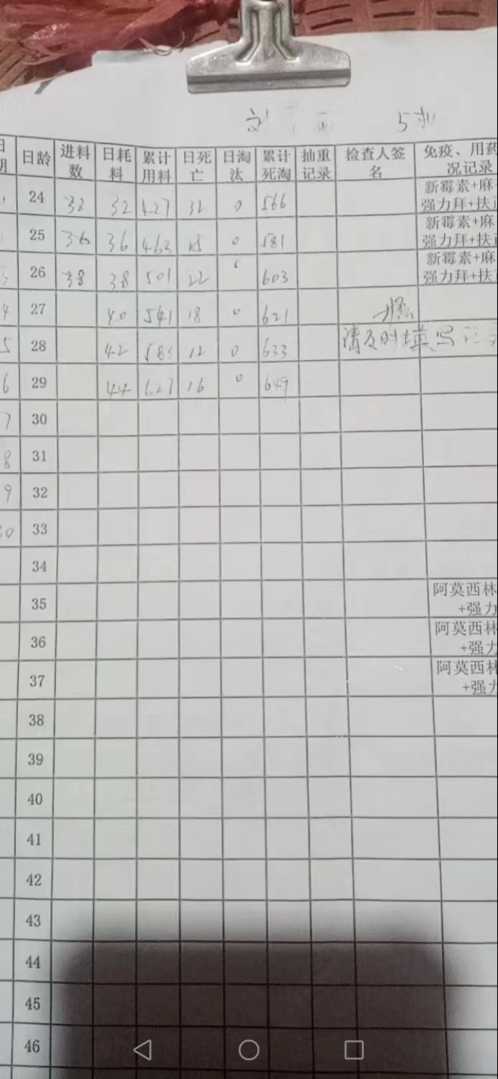 刘 5
日期 日龄 进料数 日耗料 累计用料 日死亡 日淘汰 累计死淘 抽重记录 检查人签名 免疫、用药 况记录
24 32 32 427 32 0 566 新霉素+麻 强力拜+扶
25 36 36 463 15 0 581 新霉素+麻 强力拜+扶
26 38 38 501 22 0 603 新霉素+麻 强力拜+扶
4 27 40 541 18 0 621
5 28 42 583 12 0 633 请及时填写
6 29 44 627 16 0 649
7 30
8 31
9 32
30 33
34
35 阿莫西林 +强力
36 阿莫西林 +强力
37 阿莫西林 +强力
38
39
40
41
42
43
44
45
46